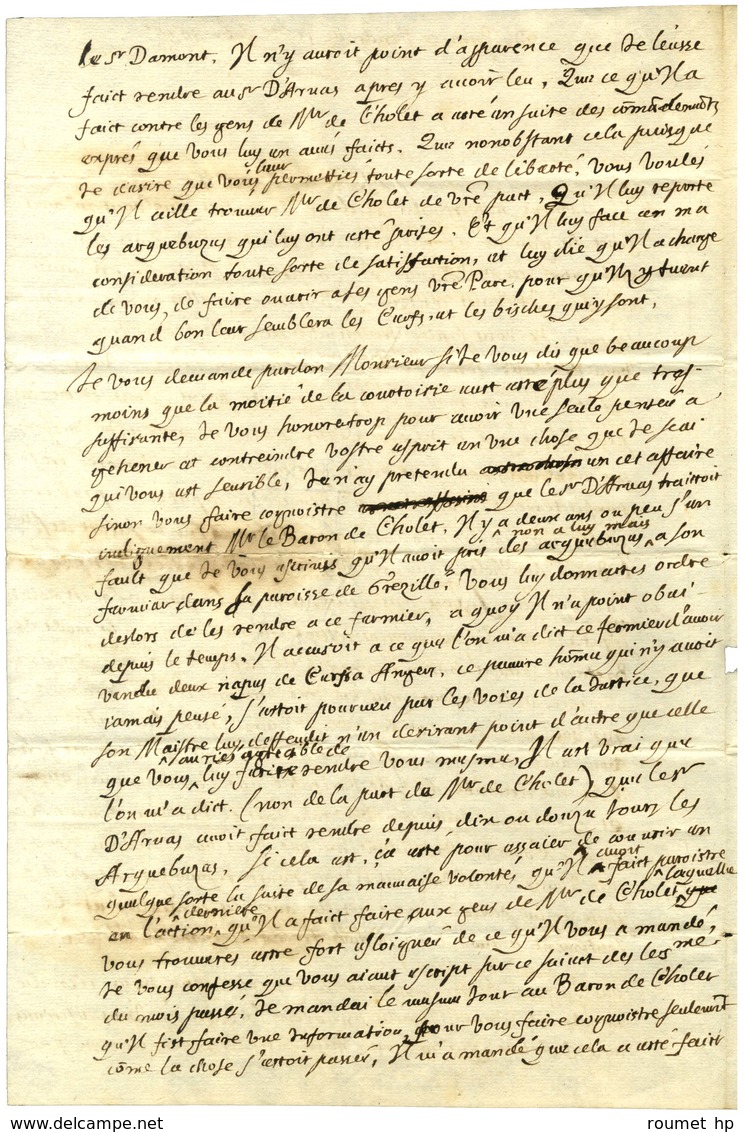 le Sr Damont. Il n'y auroit point d'apparence que Je l'eusse
faict rendre au Sr D'Arnas apres y avoir leu, Que ce qu'Il a
faict contre les gens de Mr de Cholet a esté en suite des commdements
exprés que vous luy en avés faicts. Que nonobstant cela puisque
Je desire que vous leur permettiés toute sorte de liberté, vous voulés
qu'Il aille trouver Mr de Cholet de vre part, Qu'Il luy reporte
les arquebuzes qui luy ont esté prises. Et qu'Il luy face en ma
consideration toute sorte de satisfaction, et luy die qu'Il a charge
de vous, de faire ouvrir a ses gens vre Parc, pour qu'Ilz y tuent
quand bon leur semblera les Cerfs, et les bisches qui y sont,
Je vous demande pardon Monsieur si Je vous dis que beaucoup
moins que la moitié de la courtoisie eust esté plus que tres-
suffisante, Je vous honore trop pour avoir une seule pensée a
gehener et contreindre vostre esprit en une chose que Je scai
qui vous est sensible, Je n'ay pretendu en cet affaire
sinon vous faire cognoistre que le Sr D'Arnas traittoit
indignement Mr le Baron de Cholet. Il y a deux ans ou peu s'en
fault que Je vous escrivis qu'Il avoit pris des arquebuzes non a luy mais a son
fermier dans la paroisse de Grezillé. Vous luy donnastes ordre
deslors de les rendre a ce fermier, a quoy Il n'a point obei
depuis le temps. Il accusoit a ce que l'on m'a dict ce fermier d'avoir
vendu deux napes de Cerfs a Angers, ce pauvre homme qui n'y avoit
jamais pensé, s'estoit pourveu par les voies de la Justice, que
son Maistre luy deffendit n'en desirant point d'autre que celle
que vous auriés agreable de luy rendre vous mesme, Il est vrai que
l'on m'a dict (non de la part de Mr de Cholet) que le Sr
D'Arnas avoit faict rendre depuis dix ou douze Jours les
Arquebuzes. Si cela est, ç'a esté pour essaier de couvrir en
quelque sorte la suite de sa mauvaise volonté, qu'Il avoit faict paroistre
en l'action derniere qu'Il a faict faire aux gens de Mr de Cholet, laquelle
vous trouverés estre fort esloignée de ce qu'Il vous a mandé,
Je vous confesse que vous aiant escript sur ce suiect des le 8me
du mois passé, Je mandai le mesme Jour au Baron de Cholet
qu'Il fist faire une Information, pour vous faire cognoistre seulement
comme la chose s'estoit passée, Il m'a mandé que cela a esté faict
roumet hp